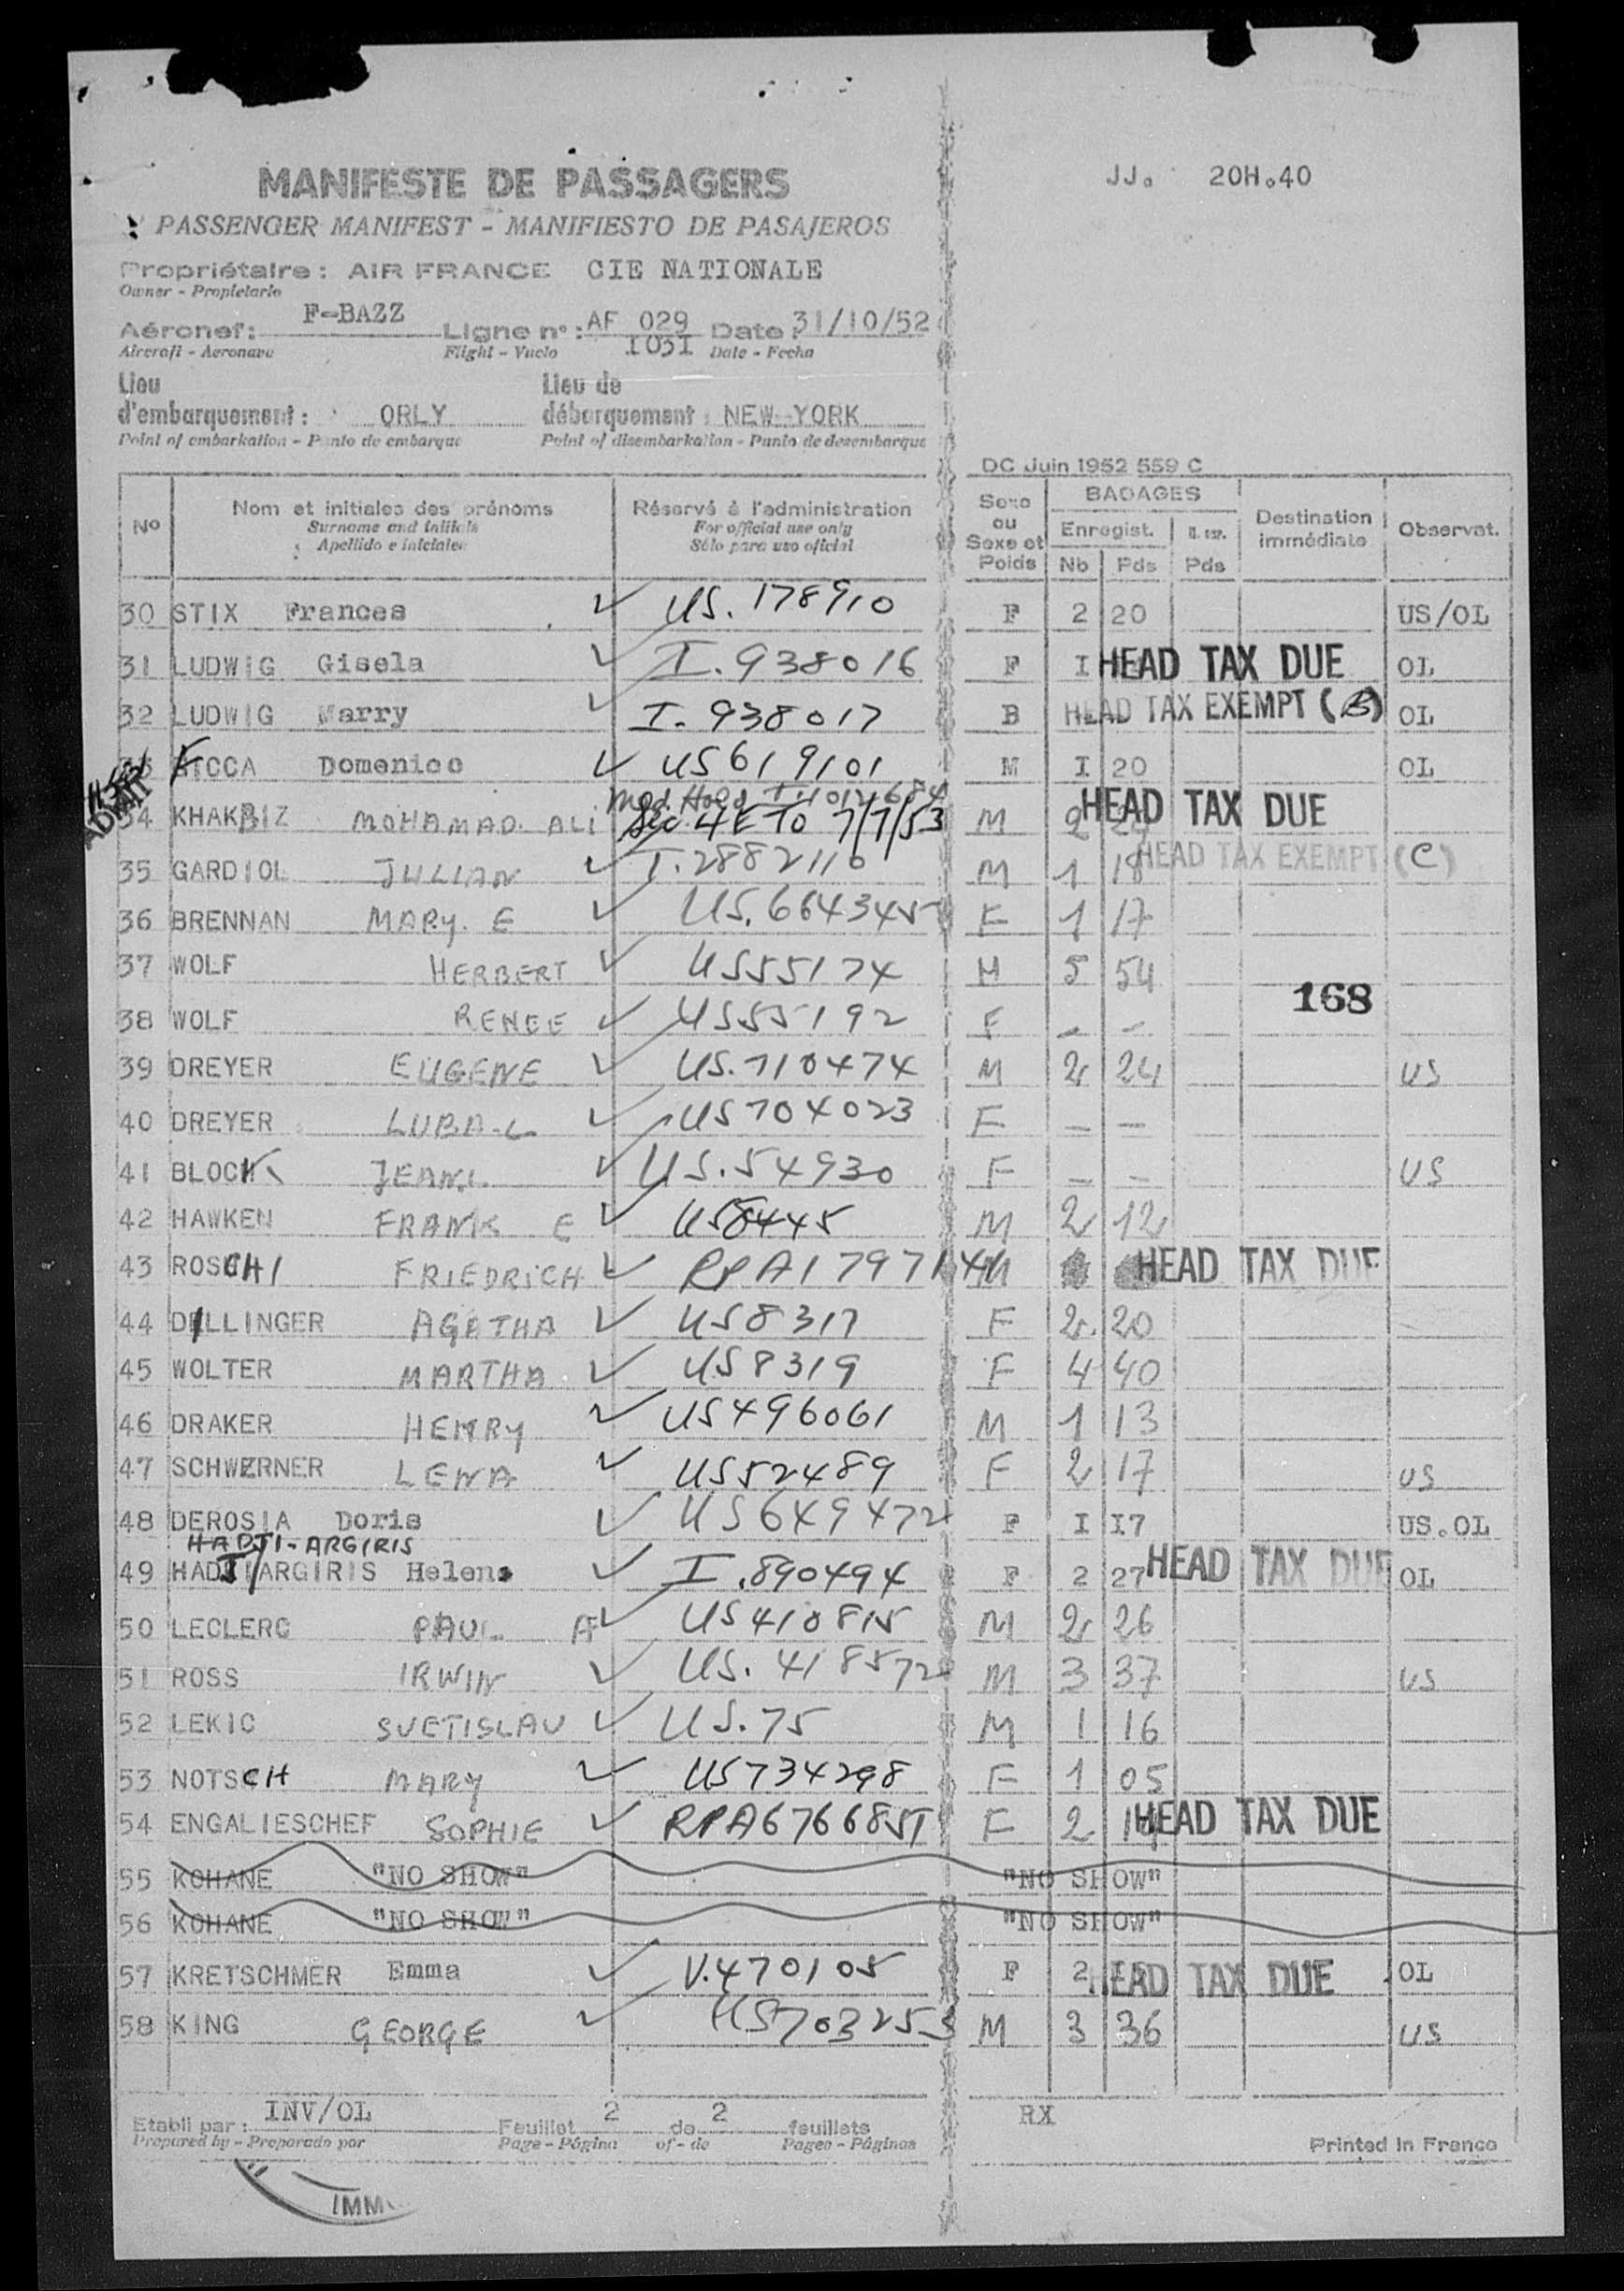 MANIFESTE DE PASSAGERS
JJ. 20H.40
PASSENGER MANIFEST - MANIFIESTO DE PASAJEROS
Propriétaire : AIR FRANCE CIE NATIONALE
Owner - Propietario
Aéronef : F-BAZZ Ligne n° : AF 029 Date : 31/10/52
Aircraft - Aeronave Flight - Vuelo I03I Date - Fecha
Lieu Lieu de
d'embarquement : ORLY débarquement : NEW-YORK
Point of embarkation - Punto de embarque Point of disembarkation - Punto de desembarque
DC Juin 1952 559 C
N° Nom et initiales des prénoms Réservé à l'administration Sexe ou Sexe et Poids BAGAGES Destination immédiate Observat.
Surname and initials For official use only Enregist.
Apellido e iniciales Sólo para uso oficial Nb Pds Pds
30 STIX Frances ✓ US. 178910 F 2 20 US/OL
31 LUDWIG Gisela ✓ I. 938016 F I HEAD TAX DUE OL
32 LUDWIG Marry ✓ I. 938017 B HEAD TAX EXEMPT (B) OL
SICCA Domenico ✓ US619101 M I 20 OL
ADMIT
34 KHAKBIZ MOHAMAD. ALI Med. Hold
4E TO 7/7/53 M 2 HEAD TAX DUE
35 GARDIOL JULIAN ✓ I.2882110 M 1 18 HEAD TAX EXEMPT (C)
36 BRENNAN MARY. E ✓ US.664345 F 1 17
37 WOLF HERBERT ✓ US55174 M 5 54
168
38 WOLF RENEE ✓ US55192 F - -
39 DREYER EUGENE ✓ US.710474 M 2 24 US
40 DREYER LUBA-L ✓ US704023 F - -
41 BLOCH JEAN.L. ✓ US.54930 F - - US
42 HAWKEN FRANK E ✓ US8445 M 2 12
43 ROSCHI FRIEDRICH ✓ HEAD TAX DUE
44 DILLINGER AGATHA ✓ US8317 F 2 20
45 WOLTER MARTHA ✓ US8319 F 4 40
46 DRAKER HENRY ✓ US496061 M 1 13
47 SCHWERNER LENA ✓ US52489 F 2 17 US
48 DEROSIA Doris ✓ US649472 F I I7 US.OL
HADJI-ARGIRIS
49 HADJI/ARGIRIS Helene ✓ I.890494 F 2 27 HEAD TAX DUE OL
50 LECLERC PAUL A ✓ US410815 M 2 26
51 ROSS IRWIN ✓ US. 418572 M 3 37 US
52 LEKIC SVETISLAV ✓ US.75 M 1 16
53 NOTSCH MARY ✓ US734298 F 1 05
54 ENGALIESCHEF SOPHIE ✓ RPA676685T F 2 HEAD TAX DUE
55 KOHANE "NO SHOW" "NO SHOW"
56 KOHANE "NO SHOW" "NO SHOW"
57 KRETSCHMER Emma ✓ V.470105 F 2 HEAD TAX DUE OL
58 KING GEORGE ✓ US703253 M 3 36 US
Etabli par : INV/OL Feuillet 2 de 2 feuillets RX
Prepared by - Preparado por Page - Página of - de Pages - Páginas Printed in France
IMM